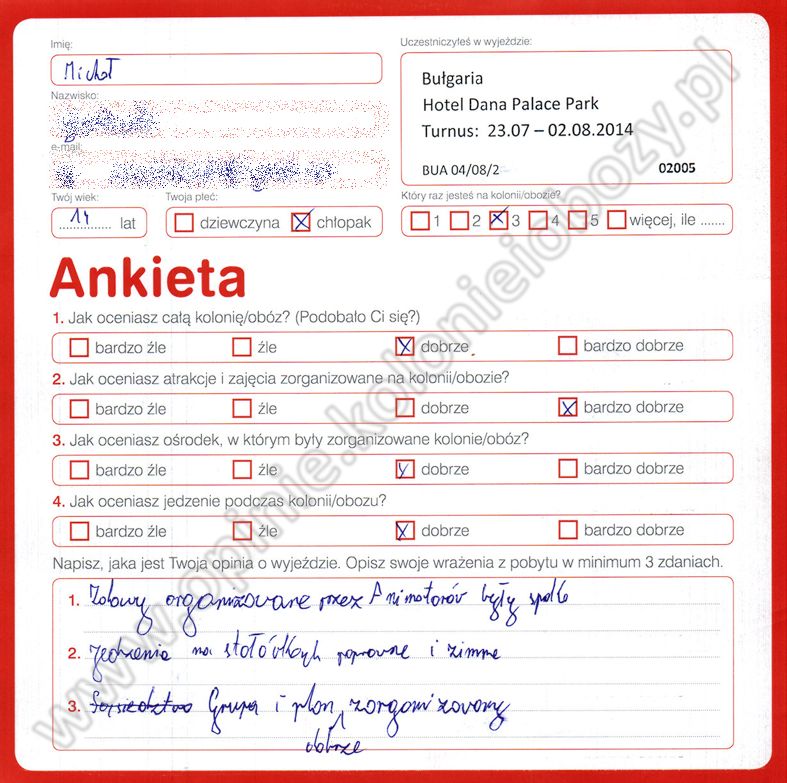 Imię:
Michał
Nazwisko:
e-mail:
Twój wiek:
14 lat
Twoja płeć:
dziewczyna chłopak
Uczestniczyłeś w wyjeździe:
Bułgaria
Hotel Dana Palace Park
Turnus: 23.07 – 02.08.2014
BUA 04/08/2 02005
Który raz jesteś na kolonii/obozie?
1 2 3 4 5 więcej, ile .......
Ankieta
1. Jak oceniasz całą kolonię/obóz? (Podobało Ci się?)
bardzo źle źle dobrze bardzo dobrze
2. Jak oceniasz atrakcje i zajęcia zorganizowane na kolonii/obozie?
bardzo źle źle dobrze bardzo dobrze
3. Jak oceniasz ośrodek, w którym były zorganizowane kolonie/obóz?
bardzo źle źle dobrze bardzo dobrze
4. Jak oceniasz jedzenie podczas kolonii/obozu?
bardzo źle źle dobrze bardzo dobrze
Napisz, jaka jest Twoja opinia o wyjeździe. Opisz swoje wrażenia z pobytu w minimum 3 zdaniach.
1. Zabawy organizowane przez Animatorów były
2. Jedzenie na stołówkach poprawne i zimne
3. Grupa i plan zorganizowany
dobrze
www.opinie.kolonieiobozy.pl